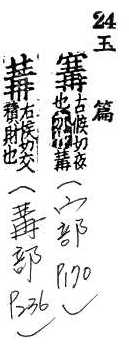 24 玉篇
古候切夜也 冓 (宀部 P170)
冓 古候切交積財也 (冓部 P236)